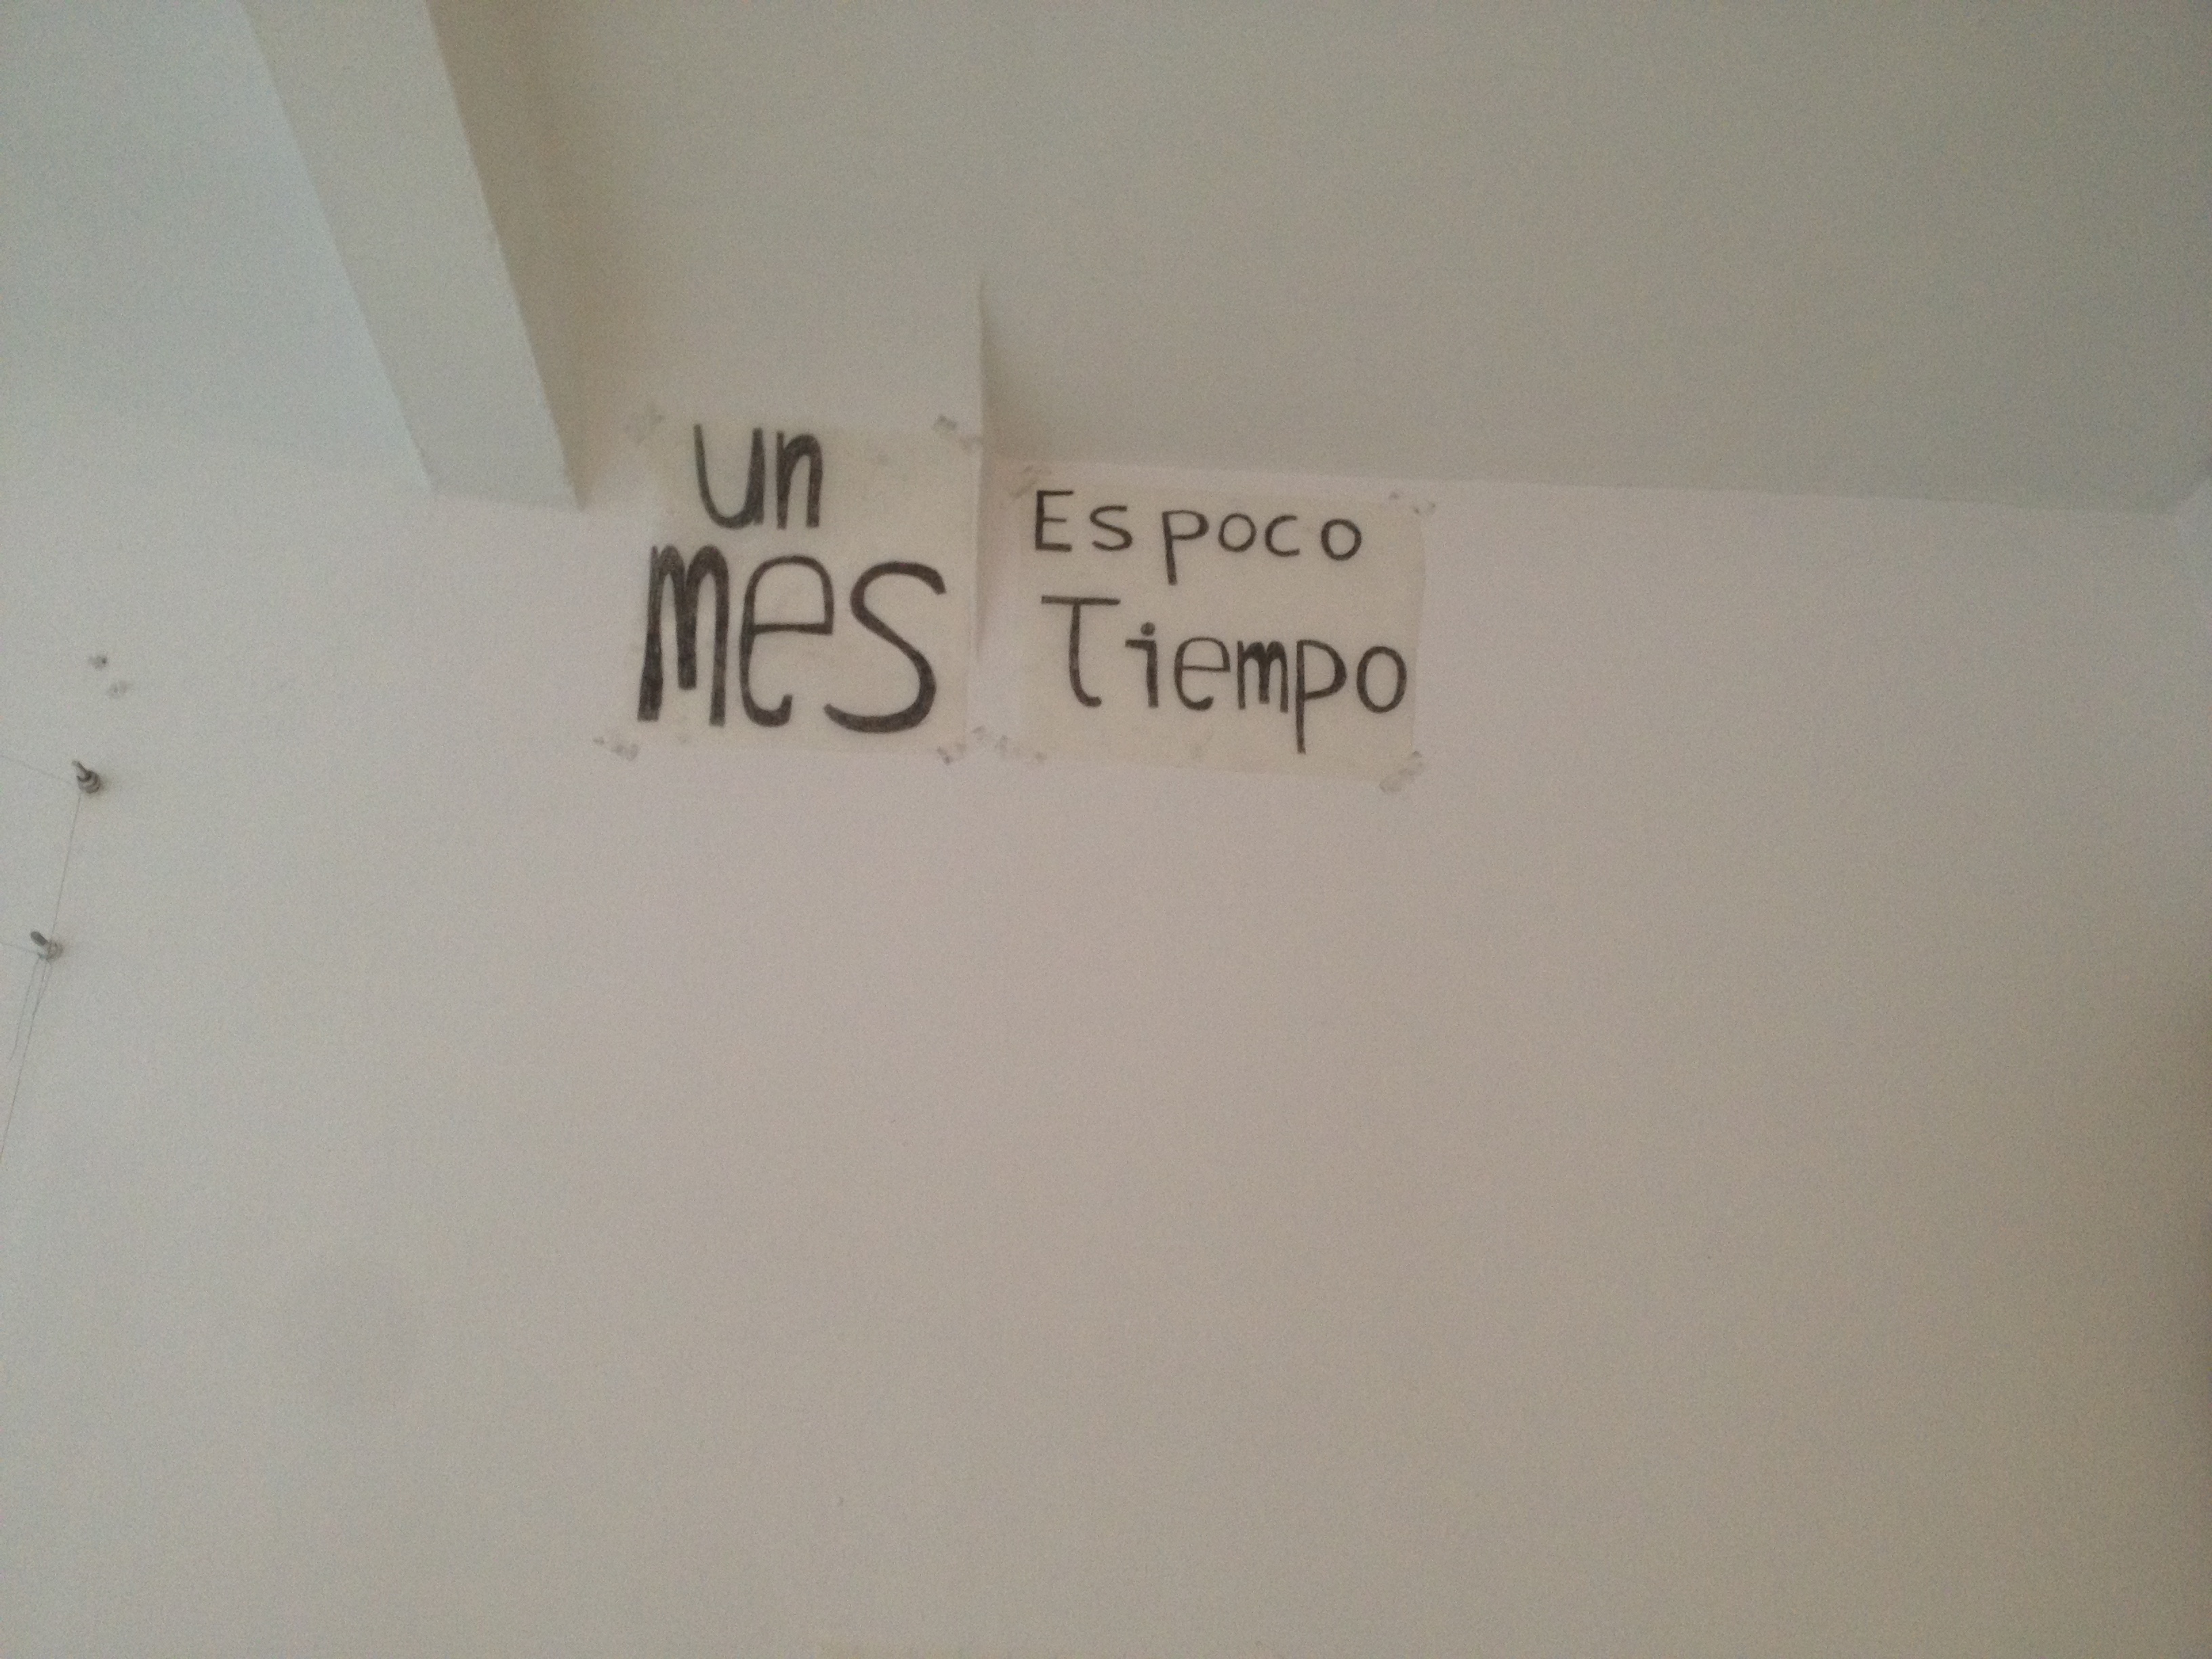 un
mes
Es poco
Tiempo